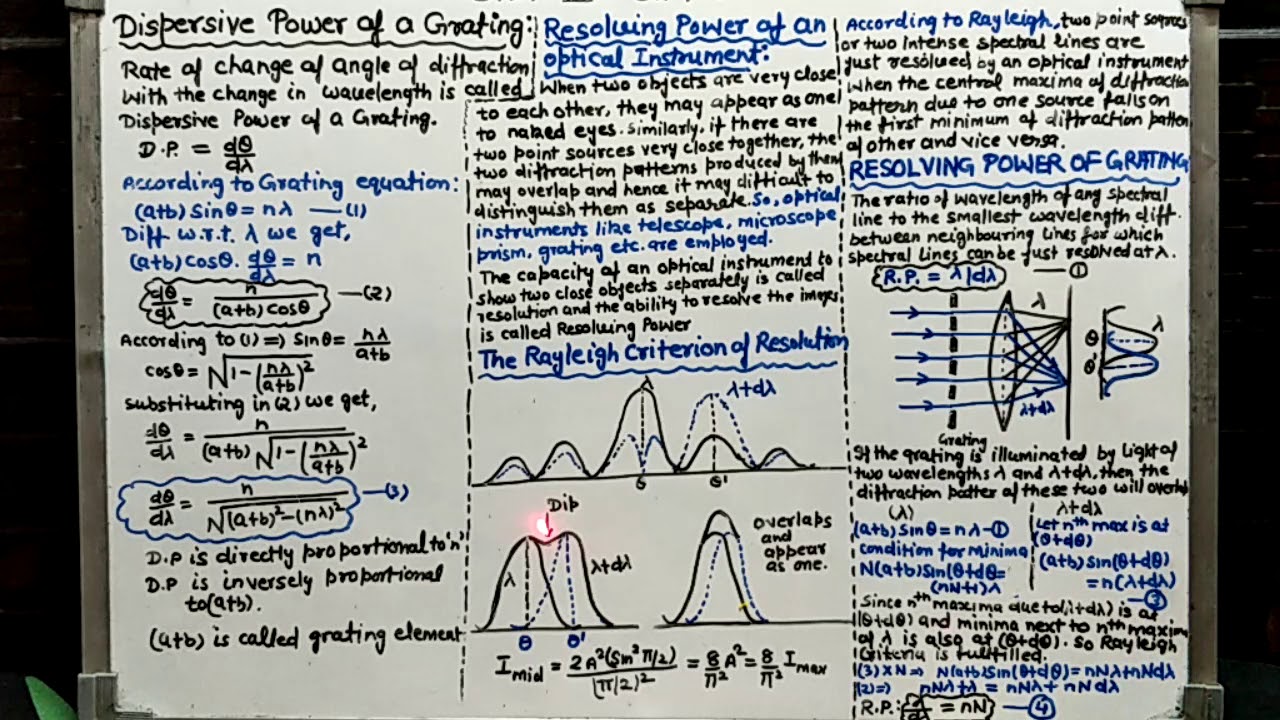 Dispersive Power of a Grating:
Rate of change of angle of diffraction
with the change in wavelength is called
Dispersive Power of a Grating.
D.P. = dθ/dλ
According to Grating equation:
(a+b) Sinθ = nλ —(1)
Diff w.r.t. λ we get,
(a+b) cosθ. dθ/dλ = n
dθ/dλ = n/(a+b) cosθ —(2)
According to (1) => Sinθ = nλ/a+b
cosθ = √1-(nλ/a+b)²
substituting in (2) we get,
dθ/dλ = n/(a+b) √1-(nλ/a+b)²
dθ/dλ = n/√(a+b)²-(nλ)² —(3)
D.P is directly proportional to 'n'
D.P is inversely proportional
to (a+b).
(a+b) is called grating element
Resolving Power of an
optical Instrument:
When two objects are very close
to each other, they may appear as one
to naked eyes. Similarly, if there are
two point sources very close together, the
two diffraction patterns produced by them
may overlap and hence it may difficult to
distinguish them as separate. So, optical
instruments like telescope, microscope
prism, grating etc. are employed.
The capacity of an optical instrument to
show two close objects separately is called
resolution and the ability to resolve the images
is called Resolving Power
The Rayleigh Criterion of Resolution
λ
λ+dλ
θ θ'
Dip
λ
λ+dλ
θ θ'
overlaps
and
appear
as one.
I mid = 2A²(Sin² π/2)/(π/2)² = 8/π² A² = 8/π² I max
According to Rayleigh, two point sources
or two intense spectral lines are
just resolved by an optical instrument
when the central maxima of diffraction
pattern due to one source falls on
the first minimum of diffraction pattern
of other and vice versa.
RESOLVING POWER OF GRATING
The ratio of wavelength of any spectral
line to the smallest wavelength diff.
between neighbouring lines for which
spectral lines can be just resolved at λ.
R.P. = λ/dλ —①
λ
λ+dλ
θ
θ'
λ
Grating
If the grating is illuminated by light of
two wavelengths λ and λ+dλ, then the
diffraction patter of these two will overlap
(λ)
(a+b) Sinθ = nλ -①
condition for minima
N(a+b) Sin(θ+dθ =
(nN+1)λ
λ+dλ
Let nth max is at
(θ+dθ)
(a+b) Sin(θ+dθ)
= n(λ+dλ)
③
Since nth maxima due to (λ+dλ) is at
(θ+dθ) and minima next to nth maxima
of λ is also at (θ+dθ). So Rayleigh
Criteria is fulfilled.
(3)×N => N(a+b) Sin(θ+dθ) = nNλ+nNdλ
(2) => nNλ+λ = nNλ + nNdλ
R.P.: λ/dλ = nN —④